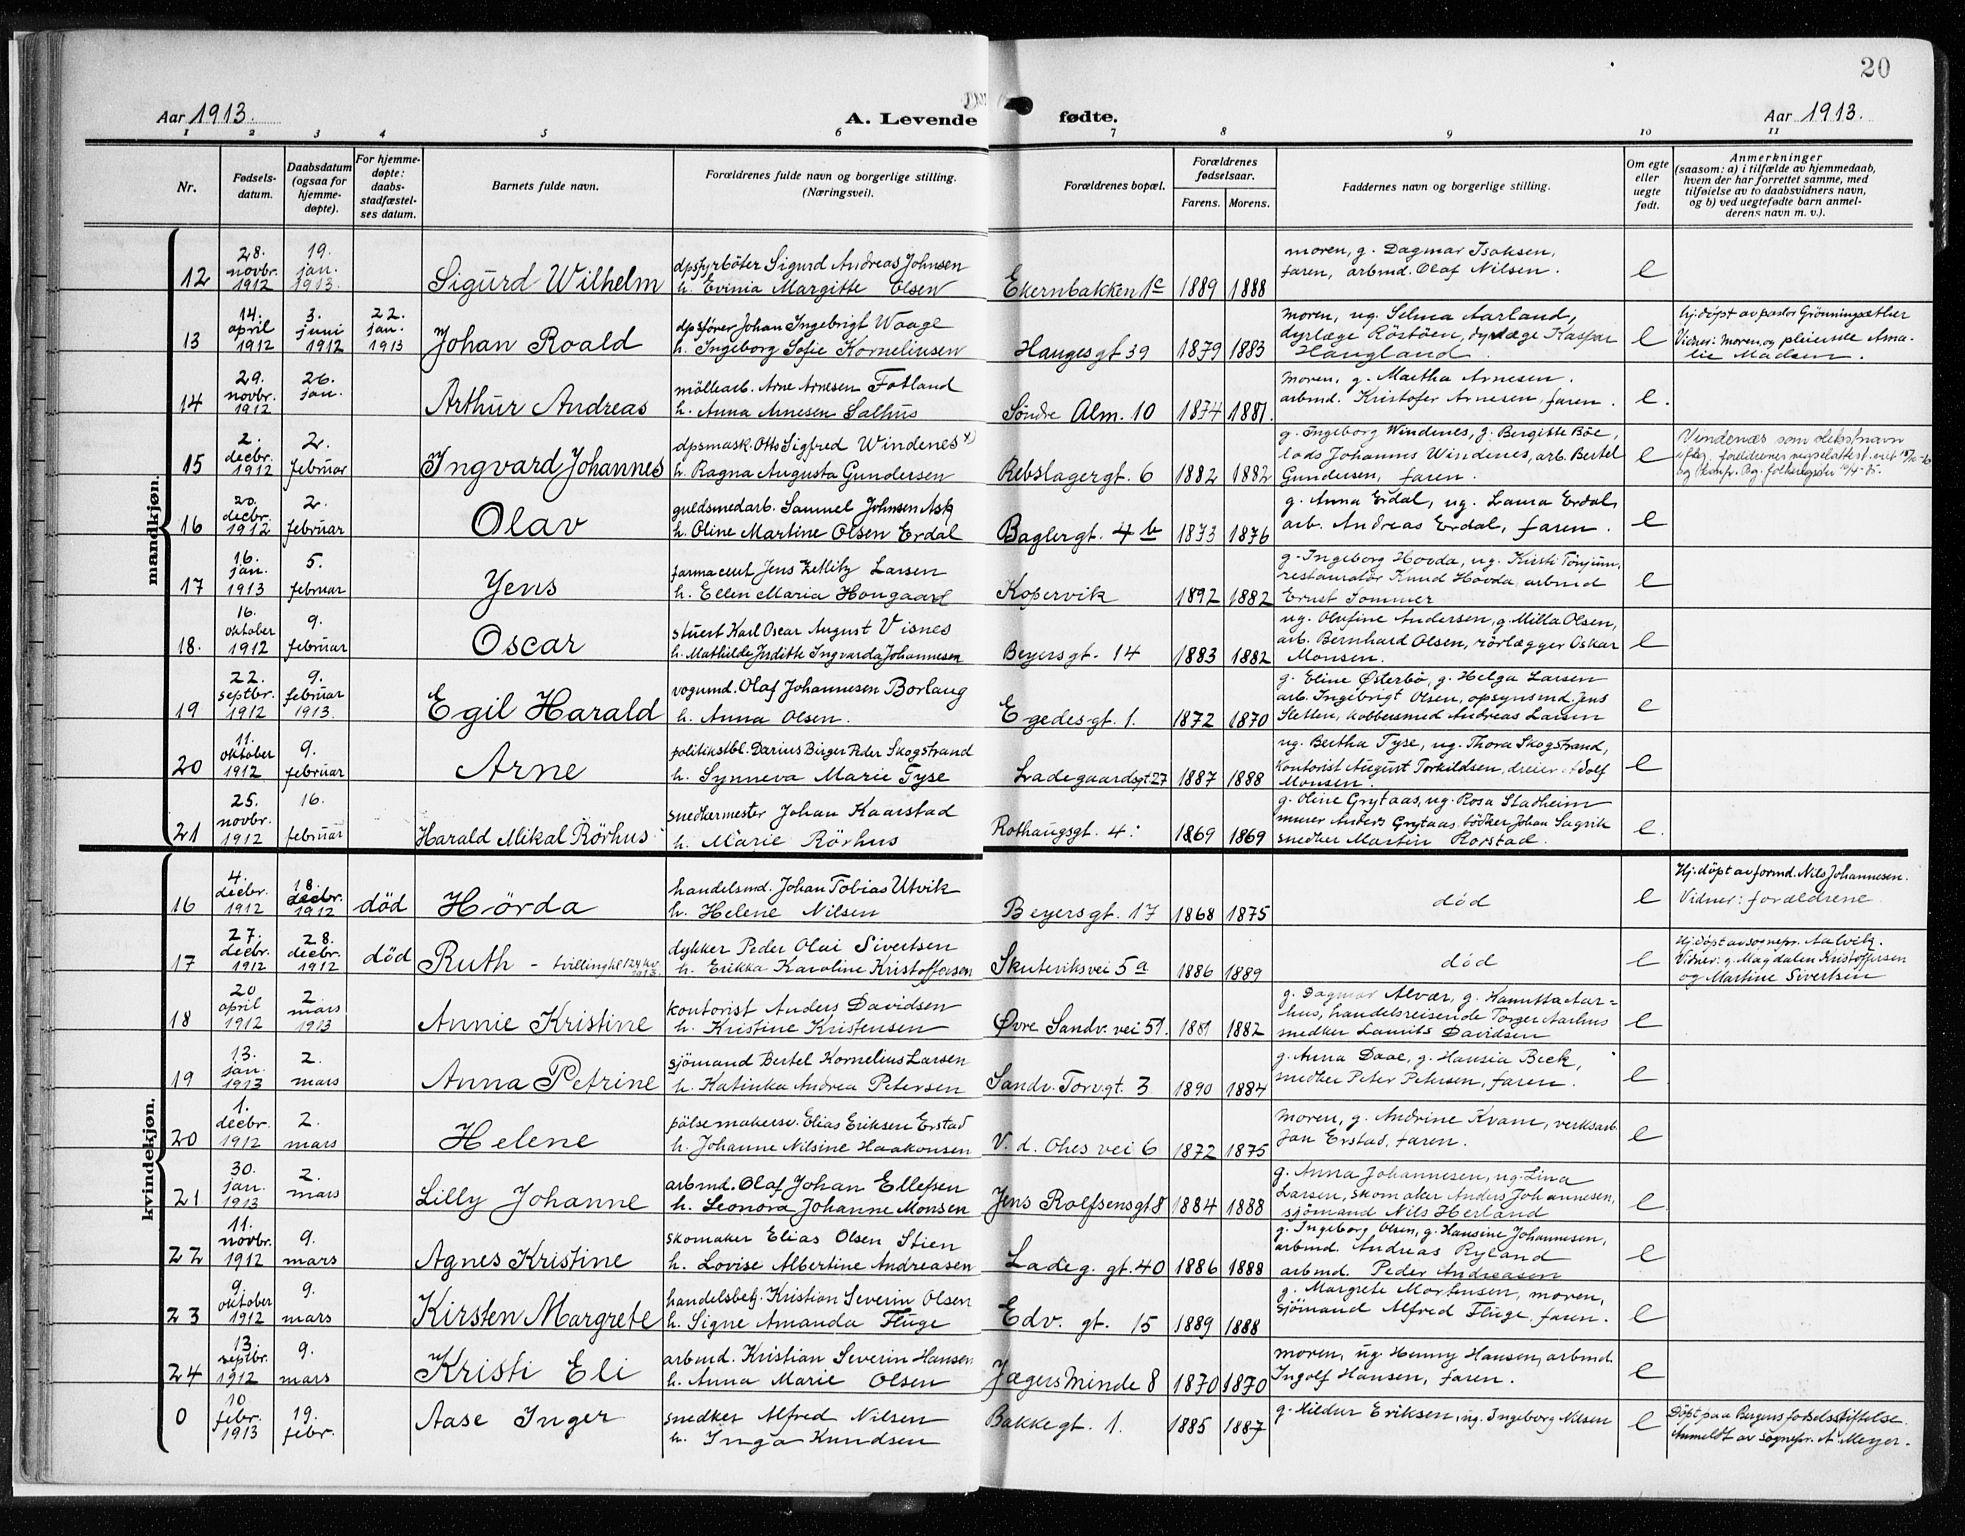 20
Aar 1913.
A. Levende fødte.
Aar 1913.
1 2 3 4 5 6 7 8 9 10 11
Nr.
Fødsels-
datum.
Daabsdatum
(ogsaa for
hjemme-
døpte).
For hjemme-
døpte:
daabs-
stadfæstel-
ses datum.
Barnets fulde navn.
Forældrenes fulde navn og borgerlige stilling.
(Næringsvei).
Forældrenes bopæl.
Forældrenes
fødselsaar.
Farens. Morens.
Faddernes navn og borgerlige stilling.
Om egte
eller
uegte
født.
Anmerkninger
(saasom: a) i tilfælde av hjemmedaab,
hvem der har forrettet samme, med
tilføielse av to daabsvidners navn,
og b) ved uegtefødte barn anmel-
derens navn m. v.).
mandkjøn.
12
28.
novbr.
1912
19.
jan.
1913.
Sigurd Wilhelm
dpsfyrbøter Sigurd Andreas Johnsen
h. Evinia Margitte Olsen
Ekernbakken 1c
1889 1888
moren, g. Dagmar Isaksen,
faren, arbmd. Olaf Nilsen.
e
13
14.
april
1912
3.
juni
1912
22.
jan.
1913
Johan Roald
dpsfører Johan Ingebrigt Waage
h. Ingeborg Sofie Korneliusen
Haugesgt 39
1879 1883
moren, ug. Selma Aarland,
dyrlæge Røstøen, dyrlæge Kaspar
Haugland.
e
hj.døpt av pastor Grønningsæther
Vidner: moren, og pleierske Ama-
lie Madsen.
14
29.
novbr.
1912
26.
jan.
Arthur Andreas
møllearb. Arne Arnesen Fotland
h. Anna Arnesen Salhus
Søndre Alm. 10
1874 1881.
moren, g. Martha Arnesen.
arbmd. Kristofer Arnesen, faren.
e.
15
2.
decbr.
1912
2.
februar
Ingvard Johannes
dpsmask. Otto Sigfred Windenes x)
h. Ragna Augusta Gundersen
Rebslagergt. 6
1882 1882
g. Ingeborg Windenes, g. Bergitte Böe,
lods Johannes Windenes, arb. Bertel
Gundersen, faren.
e
Vindenæs som slektsnavn
16
20.
decbr.
1912
2.
februar
Olav
guldsmedarb. Samuel Johnsen Ask
h. Oline Martine Olsen Erdal
Baglergt. 4 b
1873 1876
g. Anna Erdal, ug. Laura Erdal,
arb. Andreas Erdal, faren.
e
17
16.
jan.
1913
5.
februar
Yens
farmaceut Jens Zetlitz Larsen
h. Ellen Maria Hougaard
Kopervik
1892 1882
g. Ingeborg Hovda, ug. Kirsti Tönjum,
restauratør Knud Hovda, arbmd
Ernst Sommer
e
18.
16.
oktober
1912
9.
februar
Oscar
stuert Karl Oscar August Visnes
h. Mathilde Juditte Ingvarda Johannesen
Beyersgt. 14
1883 1882
ug. Olufine Andersen, g. Milla Olsen,
arb. Bernhard Olsen, rørlægger Oskar
Monsen.
e
19
22.
septbr.
1912
9.
februar
1913.
Egil Harald
vognmd. Olaf Johannesen Borlaug
h. Anna Olsen.
Egedesgt. 1.
1872 1870
g. Eline Østerbø, g. Helga Larsen
arb. Ingebrigt Olsen, opsynsmd. Jens
Sletten, kobbersmed Andreas Larsen
e
20
11.
oktober
1912
9.
februar
Arne
politikstbl. Darius Birger Peder Skogstrand
h. Synneva Marie Tyse
Ladegaardsgt 27
1887 1888
ug. Bertha Tyse, ug. Thora Skogstrand,
kontorist August Torkildsen, dreier Adolf
Monsen.
e
21
25.
novbr.
1912
16.
februar
Harald Mikal Rørhus
snedkermester Johan Kaarstad
h. Marie Rørhus
Rothaugsgt. 4.
1869 1869
g. Oline Grytaas, ug. Rosa Stadheim
murer Anders Grytaas, bødker Johan Sagvik
snedker Martin Rorstad.
e.
kvindekjøn.
16
4.
decbr.
1912
18.
decbr.
1912
død
Hørda
handelsmd. Johan Tobias Utvik
h. Helene Nilsen
Beyersgt. 17
1868 1875
død
e
Hj.døpt av formd. Nils Johannesen.
Vidner: forældrene
17
27.
decbr.
1912
28.
decbr.
1912
død
Ruth - tvilling
dykker Peder Olai Sivertsen
h. Erikka Karoline Kristoffersen
Skuteviksvei 5a
1886 1889
død
e
Hj.døpt av sognepr. Aalvik.
Vidner: g. Magdalen Kristoffersen
og Martine Sivertsen
18
20
april
1912
2.
mars
1913
Annie Kristine
kontorist Anders Davidsen
h. Kristine Kristensen
Øvre Sandv. vei 51.
1881 1882
g. Dagmar Alvær, g. Hanutta Aar-
hus, handelsreisende Torger Aarhus
snedker Laurits Davidsen
e
19
13.
jan.
1913
2.
mars
Anna Petrine
sjømand Bertel Kornelius Larsen
h. Katinka Andrea Petersen
Sandv. Torvgt. 3
1890 1884
g. Anna Daae, g. Hansia Beck,
snedker Peter Petersen, faren.
e
20
1.
decbr.
1912
2.
mars
Helene
pølsemakersv. Elias Eriksen Erstad
h. Johanne Nilsine Haakonsen
V. d. Ohes vei 6
1872 1875
moren, g. Andrine Kvam, verksarb.
Jan Erstad, faren.
e
21
30.
jan.
1913
2.
mars
Lilly Johanne
arbmd. Olaf Johan Ellefsen
h. Leonora Johanne Monsen
Jens Rolfsensgt 8
1884 1888
g. Anna Johannesen, ug. Lina
Larsen, skomaker Anders Johannesen,
sjømand Nils Herland
e
22
11.
novbr.
1912
9.
mars
Agnes Kristine
skomaker Elias Olsen Stien
h. Lovise Albertine Andreasen
Ladeg. gt. 40
1886 1888
g. Ingeborg Olsen, g. Hansine Johannesen,
arbmd. Andreas Ryland
arbmd. Peder Andreasen
e
23
9
oktober
1912
9.
mars
Kirsten Margrete
handelsbetj. Kristian Severin Olsen
h. Signe Amanda Fluge
Edv. gt. 15
1889 1888
g. Margrete Mortensen, moren,
sjømand Alfred Fluge, faren.
e
24
13.
septbr.
1912
9.
mars
Kristi Eli
arbmd. Kristian Severin Hansen
h. Anna Marie Olsen
Jægers Minde 8
1870 1870
moren, ug. Henny Hansen, arbmd.
Ingolf Hansen, faren.
e
0
10
febr.
1913
19.
febr.
Aase Inger
snedker Alfred Nilsen
h. Inga Knudsen
Bakkegt. 1.
1885 1887
g. Hildur Eriksen, ug. Ingeborg Nilsen
e
Døpt paa Bergens fødselsstiftelse.
Anmeldt av sognepr. A. Meyer.